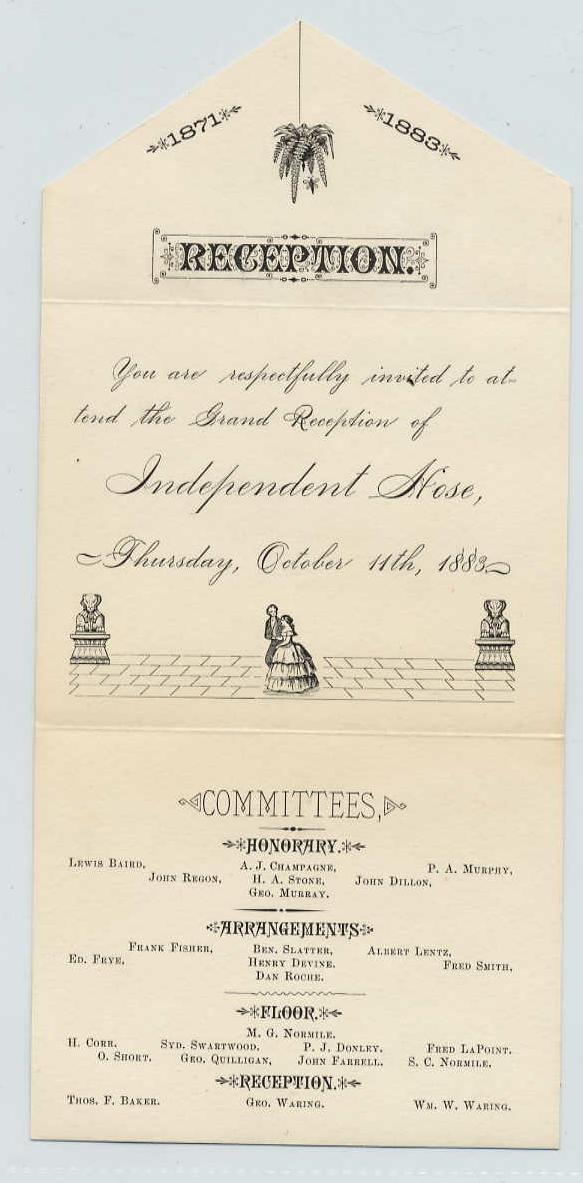 1871 1883
RECEPTION.
You are respectfully invited to at-
tend the Grand Reception of
Independent Hose,
Thursday, October 11th, 1883
COMMITTEES,
HONORARY.
LEWIS BAIRD, A. J. CHAMPAGNE, P. A. MURPHY,
JOHN REGON, H. A. STONE, JOHN DILLON,
GEO. MURRAY.
ARRANGEMENTS
FRANK FISHER, BEN. SLATTER, ALBERT LENTZ,
ED. FRYE, HENRY DEVINE. FRED SMITH,
DAN ROCHE.
FLOOR.
M. G. NORMILE.
H. CORR. SYD. SWARTWOOD. P. J. DONLEY. FRED LAPOINT.
O. SHORT. GEO. QUILLIGAN, JOHN FARRELL. S. C. NORMILE,
RECEPTION.
THOS. F. BAKER. GEO. WARING. WM. W. WARING.